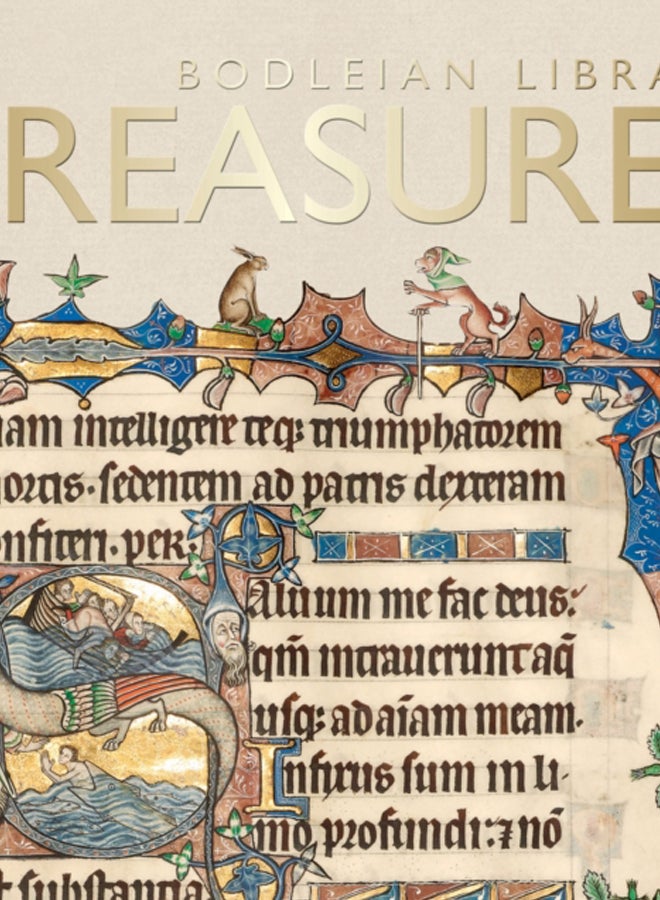 BODLEIAN LIBRA
REASURE
iam intelligere teqꝫ triumphatorem
ortis·sedentem ad patris dexteram
onfiteri·per:
Aluum me fac deus:
qm̄ intrauerunt aq̄
usqꝫ ad aīam meam.
Infixus sum in li-
mo profundi: ⁊ nō
t substantia